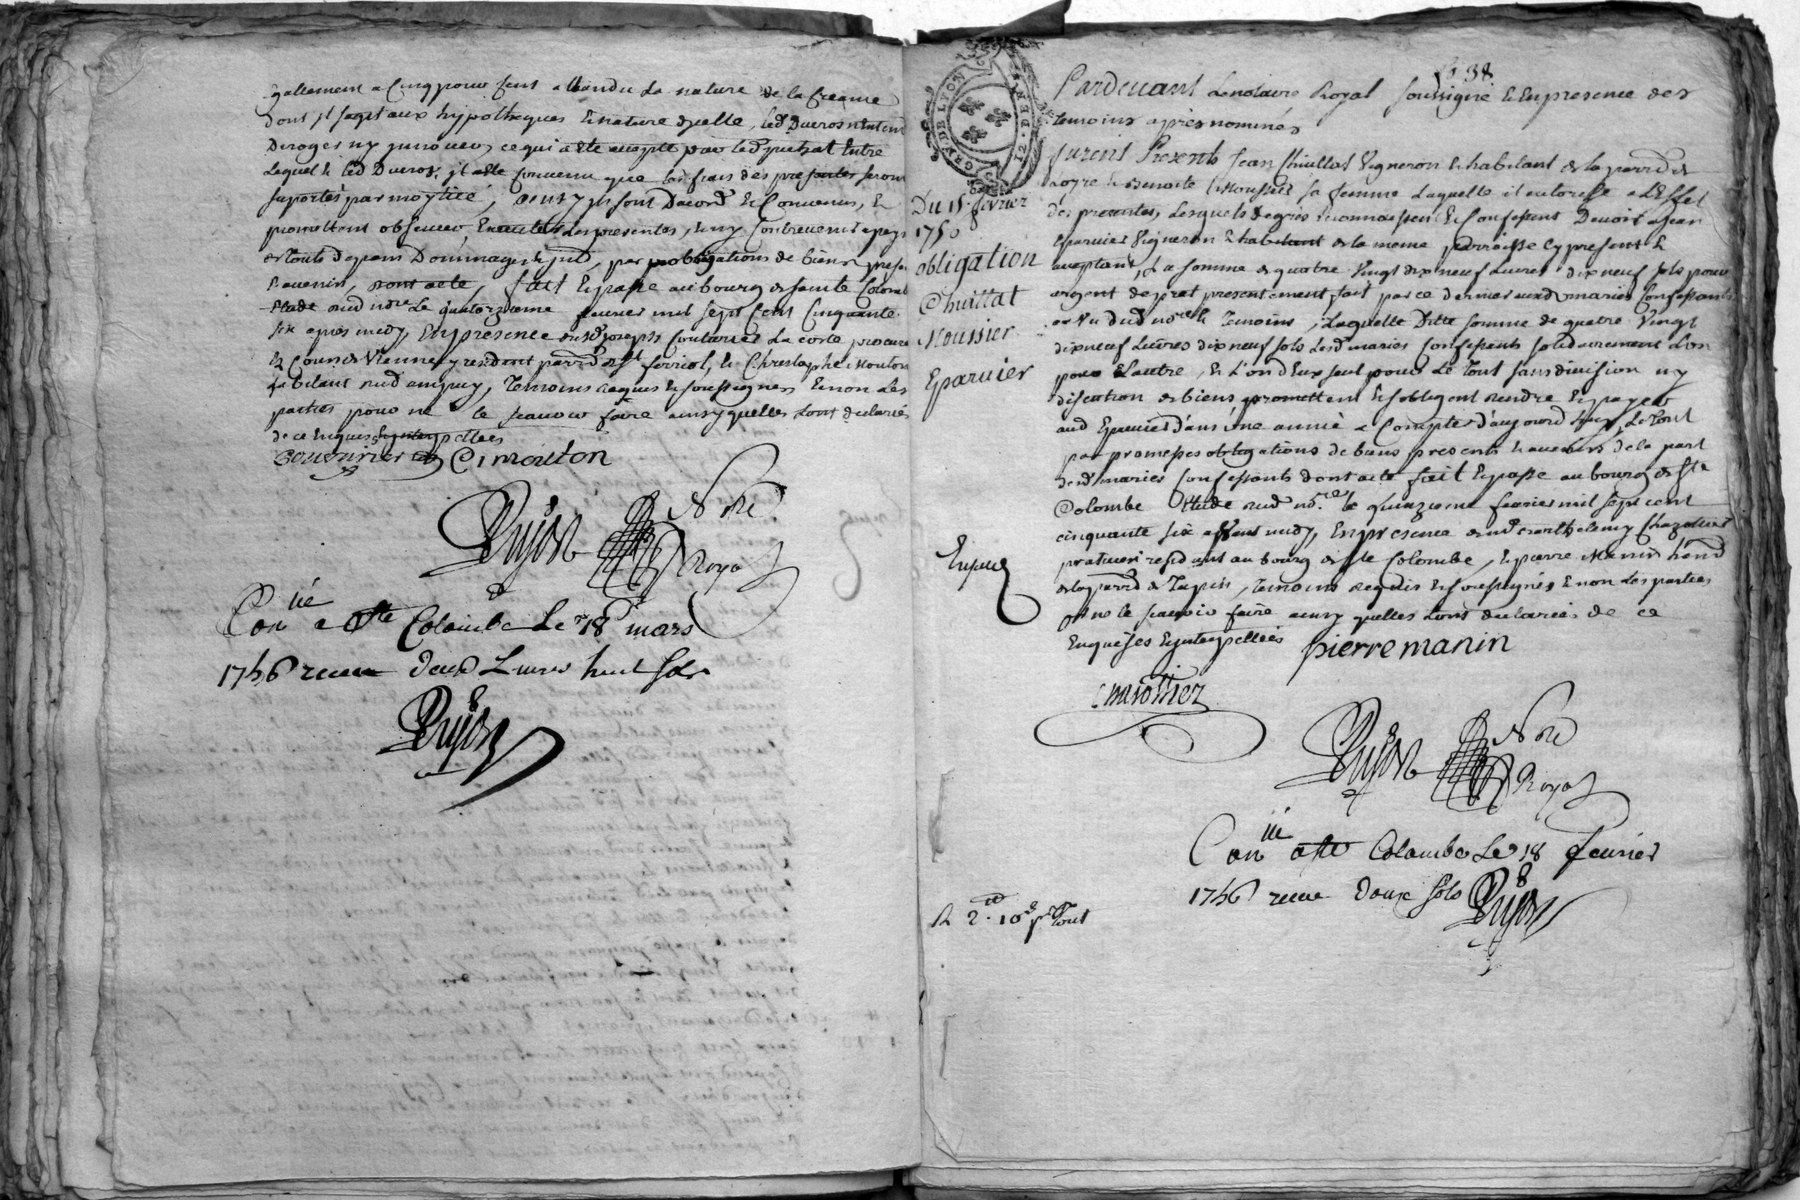 gallement a Cinq pour Cent attandu La nature de la Creance
dont jl sagit aux hypotheques & nature dyCelle, led. Ducros n'Entend
Deroger ny jnnover, ce qui a Ete accepté par led.
Lequel & led Ducros, jl a Ete Convenu que les frais des presentes seront
suportés par moytié, ainsy jls sont D'acord & Convenus, &
promettent observer, Executer les presentes, & ny Contrevenir a peyne
de touts depans Dommages & par obligations de biens presens
& avenir, dont acte, fait & passé au bourg de sainte Colombe
Etude dud no.re Le quatorzieme fevrier mil sept Cent Cinquante
six apres midy, En presence de joseph La coste procureur
Es Cours de Vienne y residant parr. de St ferriol, & Christophe Mouton
habitant dud ampuy, Temoins requis & soussignes & non Les
parties pour ne le scavoir faire ainsy quelles L'ont declaré
de ce Enquis & jnterpellées
C. mouton
Pujos No.re
Royal
Con.lé a Ste Colombe Le 18 mars
1756 receu deux Livres huit sols
Pujos
38
GN. DE LYON
Pardevant Le notaire Royal soussigné & En presence des
temoins apres nommés
Du 15 fevrier
1756
obligation
Chuillat
Moussier
Eparvier
furent Presents Jean Chuillat Vigneron & habitant de la parr. de
Loyre & Benoite Moussier sa femme Laquelle il autorise a L'Effet
des presentes, Lesquels de gré reconnoissent & Confessent Devoir a Jean
Eparvier Vigneron & habitant de la meme parroisse Cy present &
acceptant, La somme de quatre Vingt dix neuf Livres dix neuf sols pour
argent de pret presentement fait par ce dernier auxd mariés Confessants
au Vu dud no.re & Temoins, Laquelle Ditte somme de quatre Vingt
dix neuf Livres dix neuf sols Lesd mariés Confessants solidairement L'un
pour L'autre, & L'un d'Eux seul pour Le tout sans division ny
discution de biens promettent & s'obligent rendre & payer
aud Eparvier dans une année a Compter d'aujourd huy, Le tout
par promesses obligations de biens presents & avenirs de la part
desd mariés Confessants dont acte fait & passé au bourg de Ste
Colombe Etude dud no.re le quinzieme fevrier mil sept cent
cinquante six avant midy, En presence de
praticien residant au bourg de Ste Colombe, & pierre Manin
de la parr. de Tupin, temoins requis & soussignés & non Les parties
pr ne le scavoir faire ainsy quelles L'ont declarés de ce
Enquises & jnterpellées pierre manin
Pujos No.re
Royal
Con.lé a Ste Colombe Le 18 fevrier
1756 receu Doux sols Pujos
R 2.# 10.s pr Tout